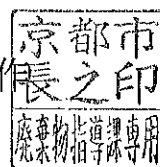 京都市
作長之印
廃棄物指導課専用